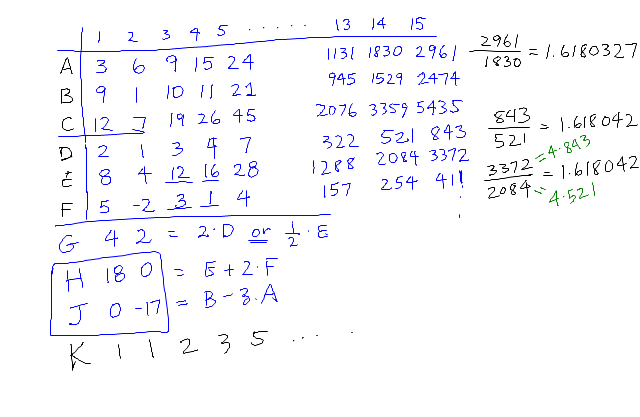 1 2 3 4 5 ..... 13 14 15
A 3 6 9 15 24 1131 1830 2961 2961/1830 = 1.6180327
B 9 1 10 11 21 945 1529 2474
C 12 7 19 26 45 2076 3359 5435 843/521 = 1.618042
D 2 1 3 4 7 322 521 843
E 8 4 12 16 28 1288 2084 3372 3372/2084 = 1.618042 =4.843 =4.521
F 5 -2 3 1 4 157 254 411
G 4 2 = 2.D or 1/2.E
H 18 0 = E+2.F
J 0 -17 = B-3.A
K 1 1 2 3 5 ... .